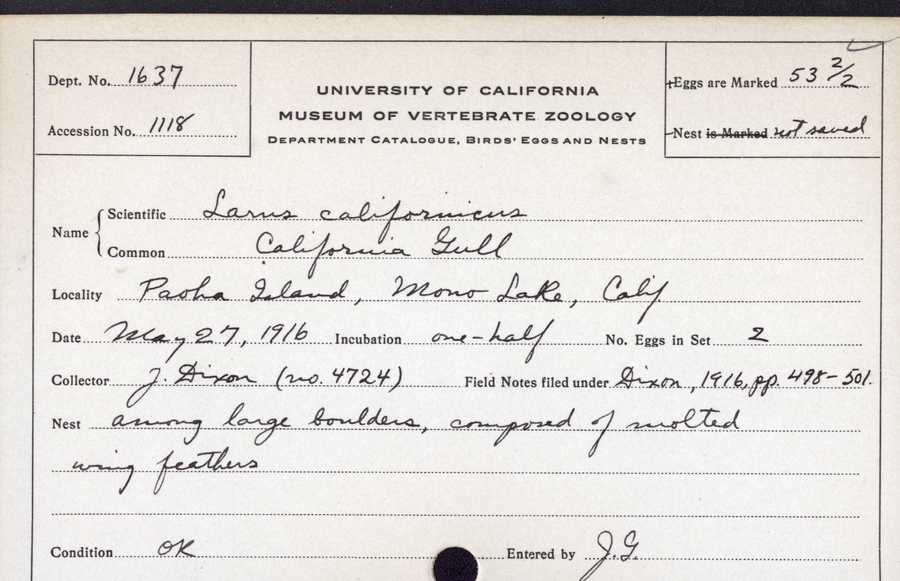 Dept. No. 1637
Accession No. 1118
UNIVERSITY OF CALIFORNIA
MUSEUM OF VERTEBRATE ZOOLOGY
DEPARTMENT CATALOGUE, BIRDS' EGGS AND NESTS
Eggs are Marked 53 2/2
Nest is Marked not saved
Name
Scientific Larus californicus
Common California Gull
Locality Paoha Island, Mono Lake, Calif
Date May 27, 1916 Incubation one-half No. Eggs in Set 2
Collector J. Dixon (no. 4724) Field Notes filed under Dixon, 1916, pp. 498-501.
Nest among large boulders, composed of molted
wing feathers
Condition OK Entered by J.G.